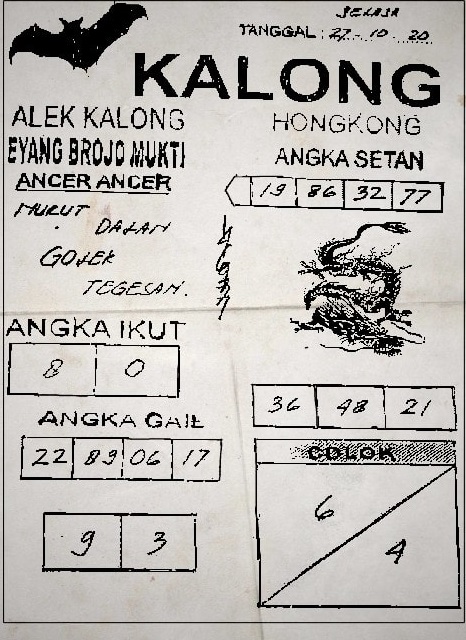 SELASA
TANGGAL : 27 - 10 - 20
KALONG
ALEK KALONG
EYANG BROJO MUKTI
ANCER ANCER
HONGKONG
ANGKA SETAN
19 86 32 77
MURUT
DALAN
GOJEK
TEGESAN.
ANGKA IKUT
8 0
36 48 21
ANGKA GAIL
22 89 06 17
COLOK
6
4
9 3